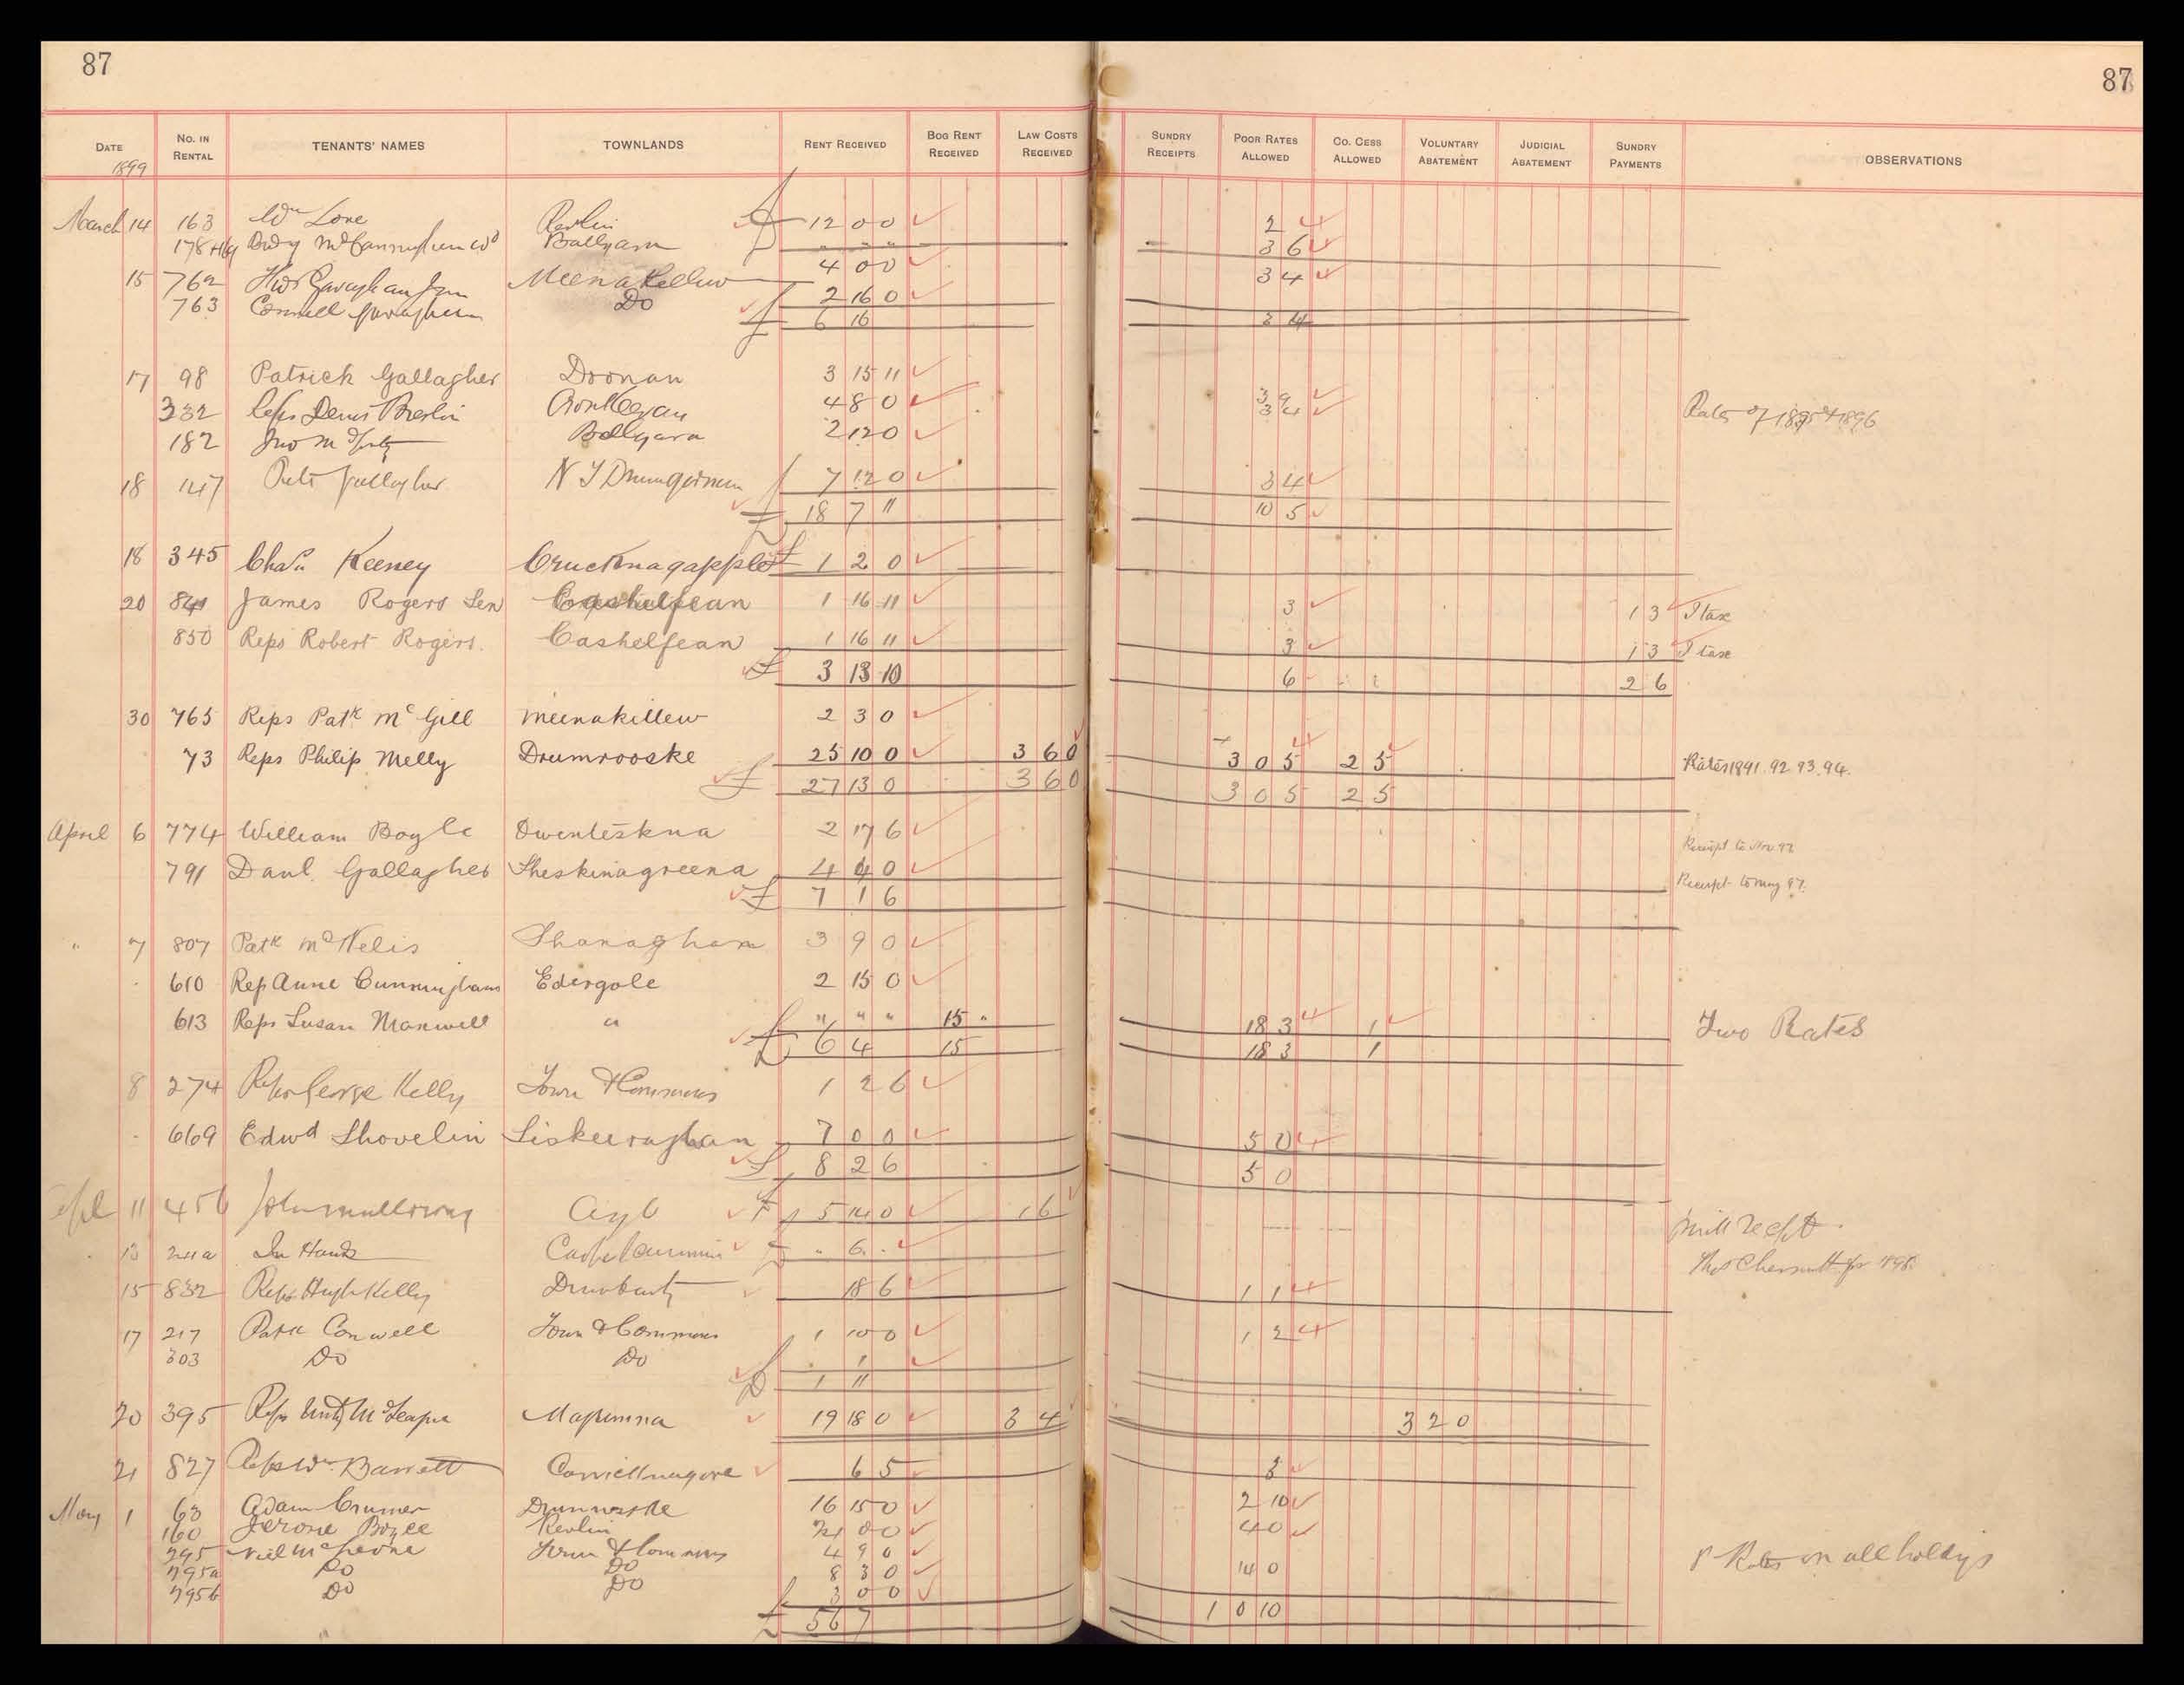 87
87
DATE NO. IN RENTAL TENANTS' NAMES TOWNLANDS RENT RECEIVED BOG RENT RECEIVED LAW COSTS RECEIVED SUNDRY RECEIPTS POOR RATES ALLOWED CO. CESS ALLOWED VOLUNTARY ABATEMENT JUDICIAL ABATEMENT SUNDRY PAYMENTS OBSERVATIONS
1899
March 14 163 Wm Love Revlin 12 0 0 2
Ballyara 3 6
4 0 0 3 4
15 762 Meenakillew 2 16 0
763 Connell Do 6 16 3 4
17 98 Patrick Gallagher Doonan 3 15 11
332 Reps Denis Breslin 4 8 0 3 9 3 4 Rates of 1895 & 1896
182 Jno Ballyara 2 12 0
18 147 Gallagher 7 12 0 3 4
18 7 11 10 5
18 345 Chas Keeney Crucknagapple £ 1 2 0
20 841 James Rogers Sen Cashelfean 1 16 11 3 1 3 I tax
850 Reps Robert Rogers. Cashelfean 1 16 11 3 1 3 I tax
£ 3 13 10 6 2 6
30 765 Reps Patk Mc Gill Meenakillew 2 3 0
73 Reps Philip Melly Drumrooske 25 10 0 3 6 0 3 0 5 2 5 Rates 1891. 92 93. 94.
£ 27 13 0 3 6 0 3 0 5 2 5
April 6 774 William Boyle 2 17 6 Receipt to Nov. 97
791 Danl. Gallagher Sheskinagreena 4 4 0 Receipt to May 97.
£ 7 1 6
" 7 807 Patk McNelis Shanaghan 3 9 0
610 Rep Anne Cunningham Edergole 2 15 0
613 Reps Susan Maxwell " " " " 15 " 18 3 1 Two Rates
£ 6 4 15 18 3 1
8 274 Reps George Kelly Town & Commons 1 2 6
669 Edwd Shovelin Liskeeraghan 7 0 0 5 0
£ 8 2 6 5 0
April 11 456 5 14 0 1 6
13 211a In Hands " 6 .
15 832 Reps Hugh Kelly Drumbarty 18 6 1 1
17 217 Patk Conwell Town & Commons 1 10 0 1 2
303 Do Do 1
1 11
20 395 19 18 0 3 4 3 2 0
21 827 Reps Wm Barrett 6 5 3
May 1 63 Adam Drumrooske 16 15 0 2 10
160 Jerome Boyce Revlin 4 0
295 Town & Commons 4 9 0
295a Do Do 8 3 0 14 0 P Rates on all holdgs
295b Do Do 3 0 0
£ 56 7 1 0 10